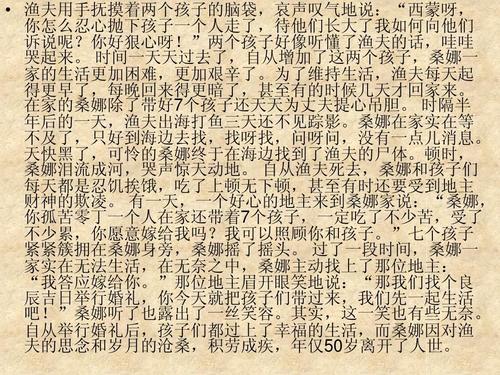 • 渔夫用手抚摸着两个孩子的脑袋，哀声叹气地说：“西蒙呀，
你怎么忍心抛下孩子一个人走了，待他们长大了我如何向他们
诉说呢？你好狠心呀！”两个孩子好像听懂了渔夫的话，哇哇
哭起来。 时间一天天过去了，自从增加了这两个孩子，桑娜一
家的生活更加困难，更加艰辛了。为了维持生活，渔夫每天起
得更早了，每晚回来得更暗了，甚至有的时候几天才回家来。
在家的桑娜除了带好7个孩子还天天为丈夫提心吊胆。 时隔半
年后的一天，渔夫出海打鱼三天还不见踪影。桑娜在家实在等
不及了，只好到海边去找，找呀找，问呀问，没有一点儿消息。
天快黑了，可怜的桑娜终于在海边找到了渔夫的尸体。顿时，
桑娜泪流成河，哭声惊天动地。 自从渔夫死去，桑娜和孩子们
每天都是忍饥挨饿，吃了上顿无下顿，甚至有时还要受到地主
财神的欺凌。 有一天，一个好心的地主来到桑娜家说：“桑娜，
你孤苦零丁一个人在家还带着7个孩子，一定吃了不少苦，受了
不少累，你愿意嫁给我吗？我可以照顾你和孩子。”七个孩子
紧紧簇拥在桑娜身旁，桑娜摇了摇头。 过了一段时间，桑娜一
家实在无法生活，在无奈之中，桑娜主动找上了那位地主：
“我答应嫁给你。”那位地主眉开眼笑地说：“那我们找个良
辰吉日举行婚礼，你今天就把孩子们带过来，我们先一起生活
吧！”桑娜听了也露出了一丝笑容。其实，这一笑也有些无奈。
自从举行婚礼后，孩子们都过上了幸福的生活，而桑娜因对渔
夫的思念和岁月的沧桑，积劳成疾，年仅50岁离开了人世。